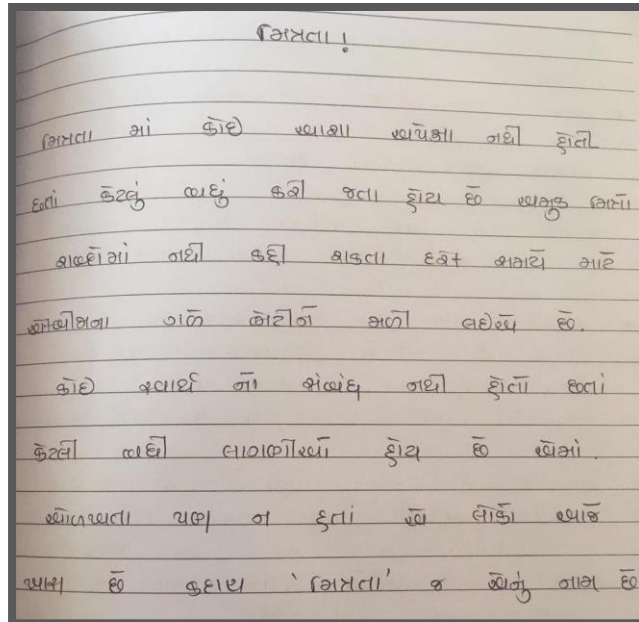 મિત્રતા !
મિત્રતા માં કોઈ આશા અપેક્ષા નથી હોતી
છતાં કેટલું બધું કરી જતા હોય છે અમુક મિત્રો
શબ્દોમાં નથી કહી શકતા દરેક સમયે માટે
એકબીજાના ગળે ભેટીને મળી લઇએ છે.
કોઈ સ્વાર્થ નો સંબંધ નથી હોતો છતાં
કેટલી બધી લાગણીઓ હોય છે એમાં.
ઓળખતા પણ ન હતાં એ લોકો આજ
ખાસ છે કદાચ 'મિત્રતા' જ એનું નામ છે